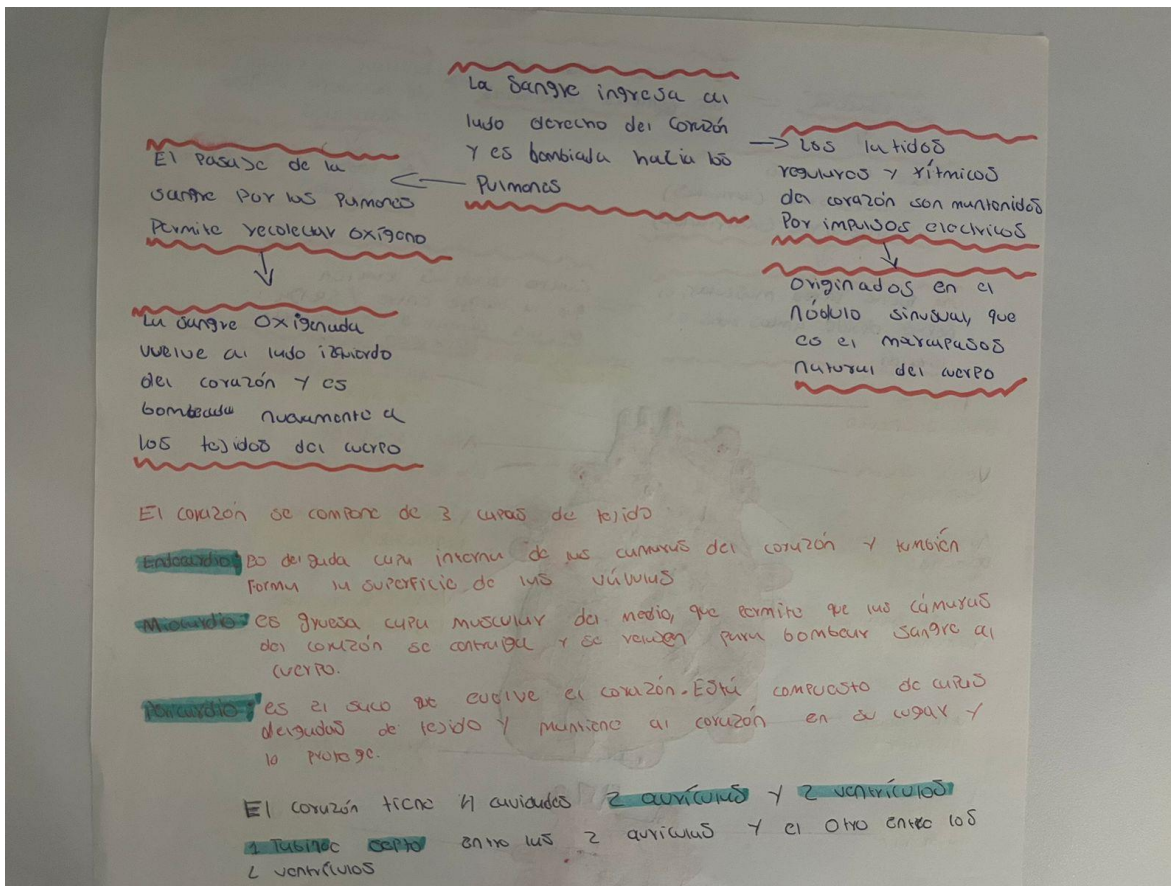 La Sangre ingresa al
lado derecho del Corazón
Y es bombiada hacia los
Pulmones
El Pasaje de la
sangre Por los Pumones
Permite recolectar oxígeno
La sangre Oxigenada
vuelve al lado izquierdo
del corazón Y es
bombeada nuevamente a
los tejidos del cuerpo
Los latidos
regulares Y rítmicos
del corazón son mantenidos
Por impulsos electricos
Originados en el
nódulo sinusual, que
es el marcapasos
natural del cuerpo
El corazón se compone de 3 capas de tejido
Endocardio: es delgada capa interna de las camaras del corazón Y también
Forma la superficie de las válvulas
Miocardio: es gruesa capa muscular del medio, que permite que las cámaras
del corazón se contraiga Y se relajen para bombear sangre al
cuerpo.
Pericardio: es el saco que evuelve el corazón. Está compuesto de capas
delgadas de tejido Y mantiene al corazón en su lugar Y
lo protege.
El corazón tiene 4 cavidades 2 aurículas Y 2 ventrículos
1 Tabique septo entre las 2 aurículas Y el Otro entre los
2 ventrículos